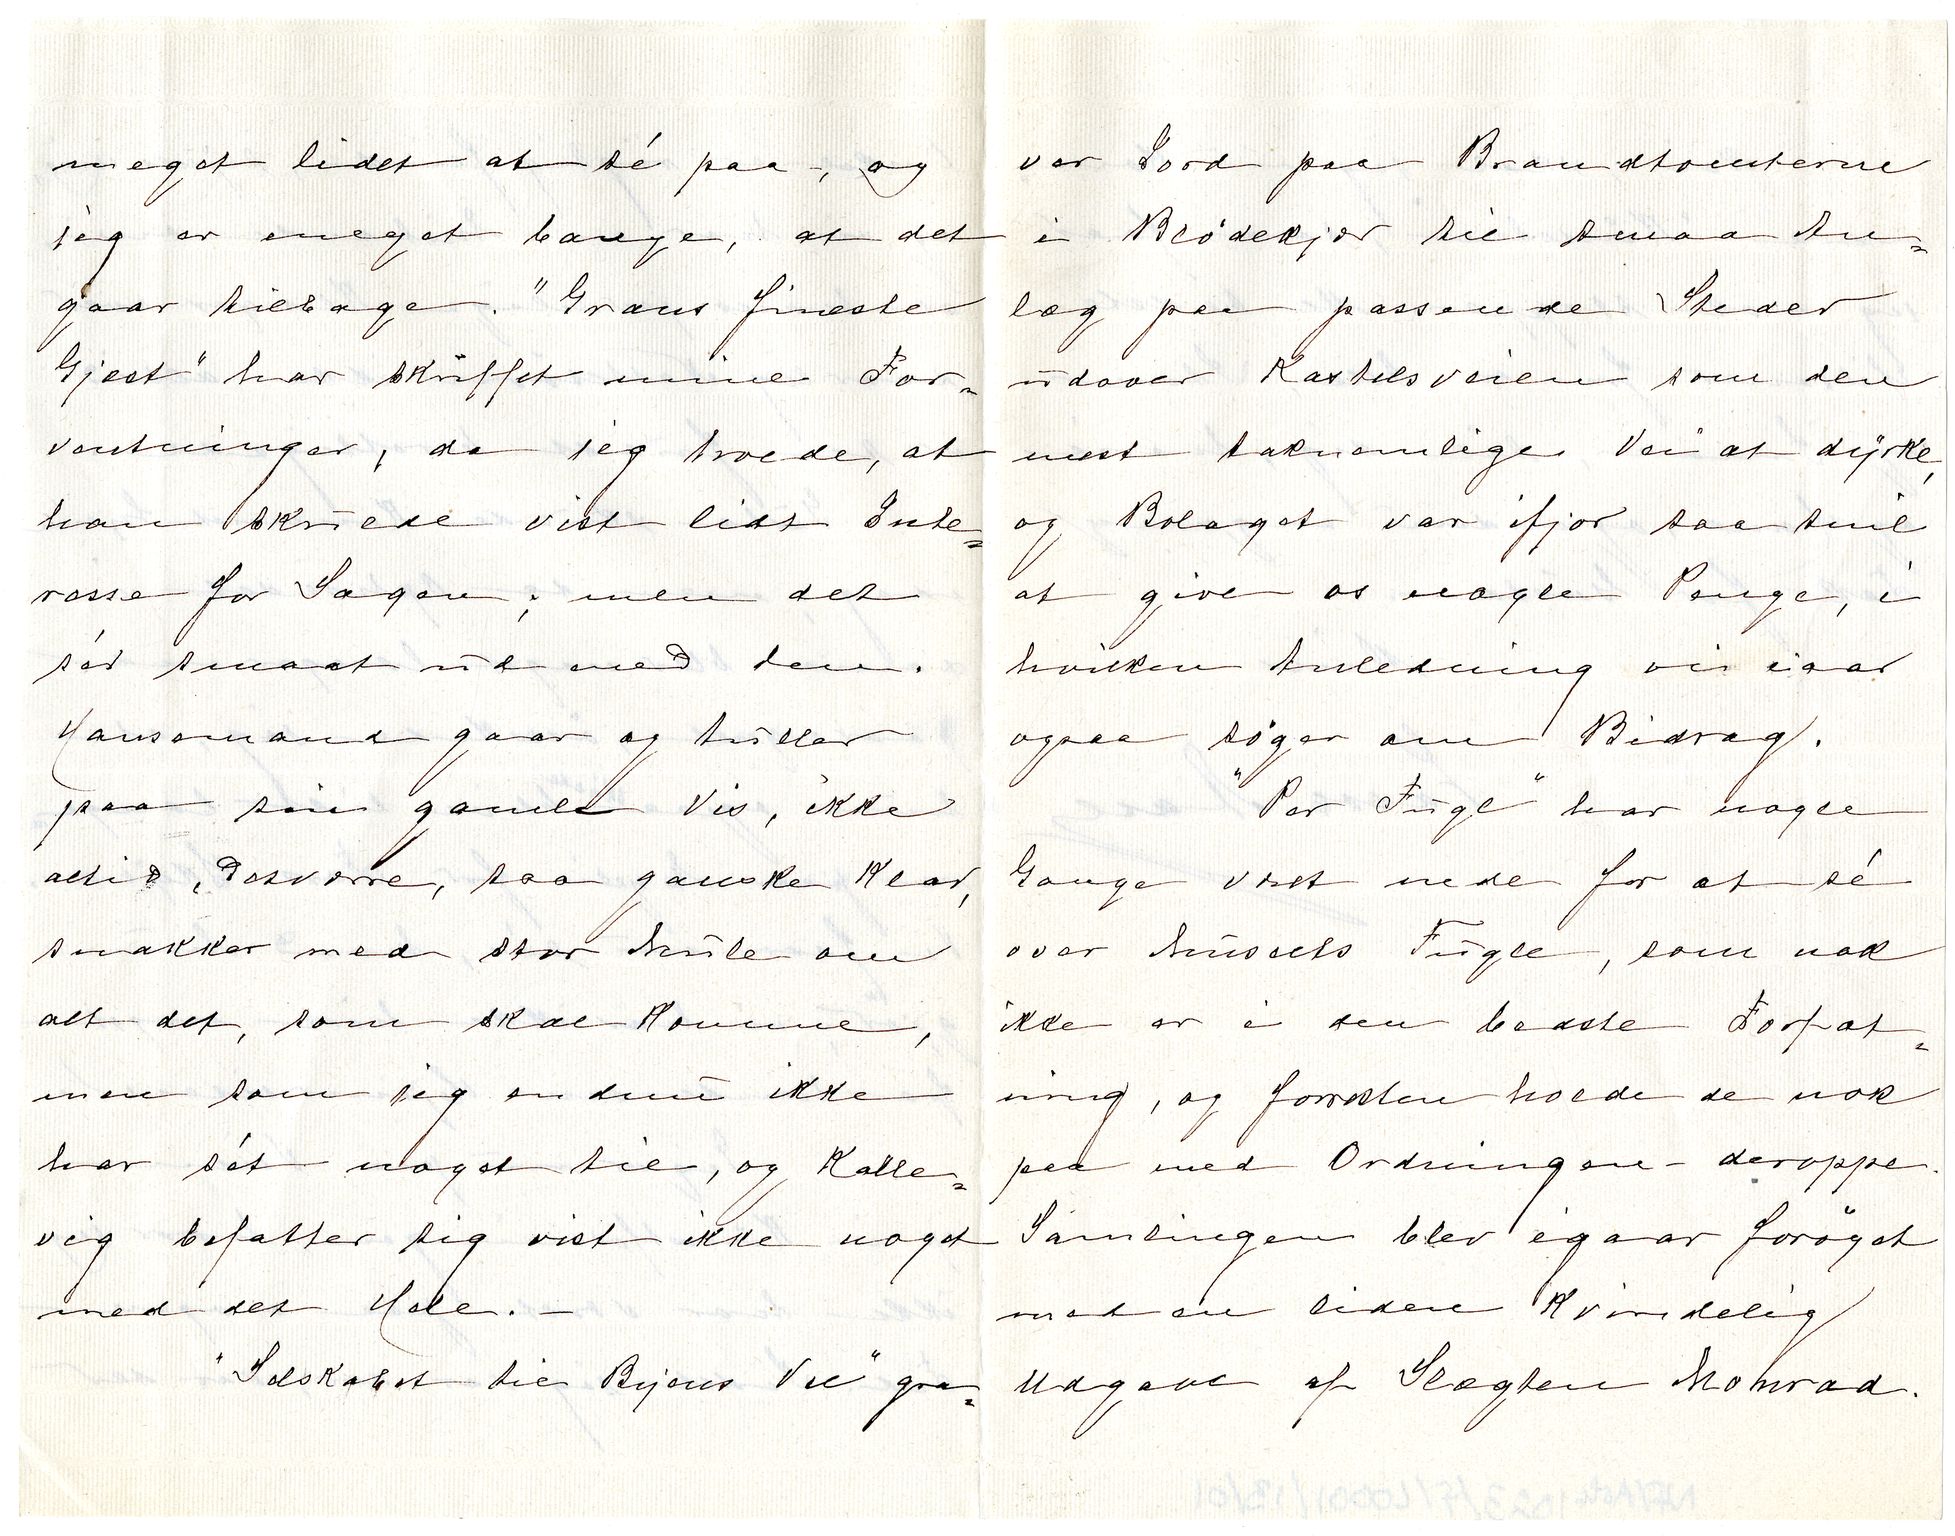 meget lidet at sé paa, og
jeg er meget bange, at det
gaar tilbage. "Grans fineste
Gjest" har skuffet mine For-
ventninger, da jeg troede, at
han skulde vist lidt Inte-
resse for Sagen; men det
sér smaat ud med den.
Hansemand gaar og tuller
paa sin gamle Vis, ikke
altid, desværre, saa ganske klar,
snakker med stor Mule om
alt det, som skal komme,
men som jeg endnu ikke
har sét noget til, og Kalle-
vig befatter sig vist ikke noget
med det Hele. –
"Selskabet til Byens Vel" gra-
ver Jord paa Brandtomterne
i Blødekjær til smaa An-
læg paa passende Steder
udover Kastelsveien som den
mest taknemlige Vei at dyrke,
og Bolaget var ifjor saa snil
at give os nogle Penge, i
hvilken Anledning vi iaar
ogsaa søger om Bidrag.
"Per Fugl" har nogle
Gange vært nede for at sé
over Musæets Fugle, som nok
ikke er i den bedste Forfat-
ning, og forresten holde de nok
paa med Ordningen deroppe.
Samlingen blev igaar forøget
med en liden kvindelig
Udgave af Slægten Mohrad.